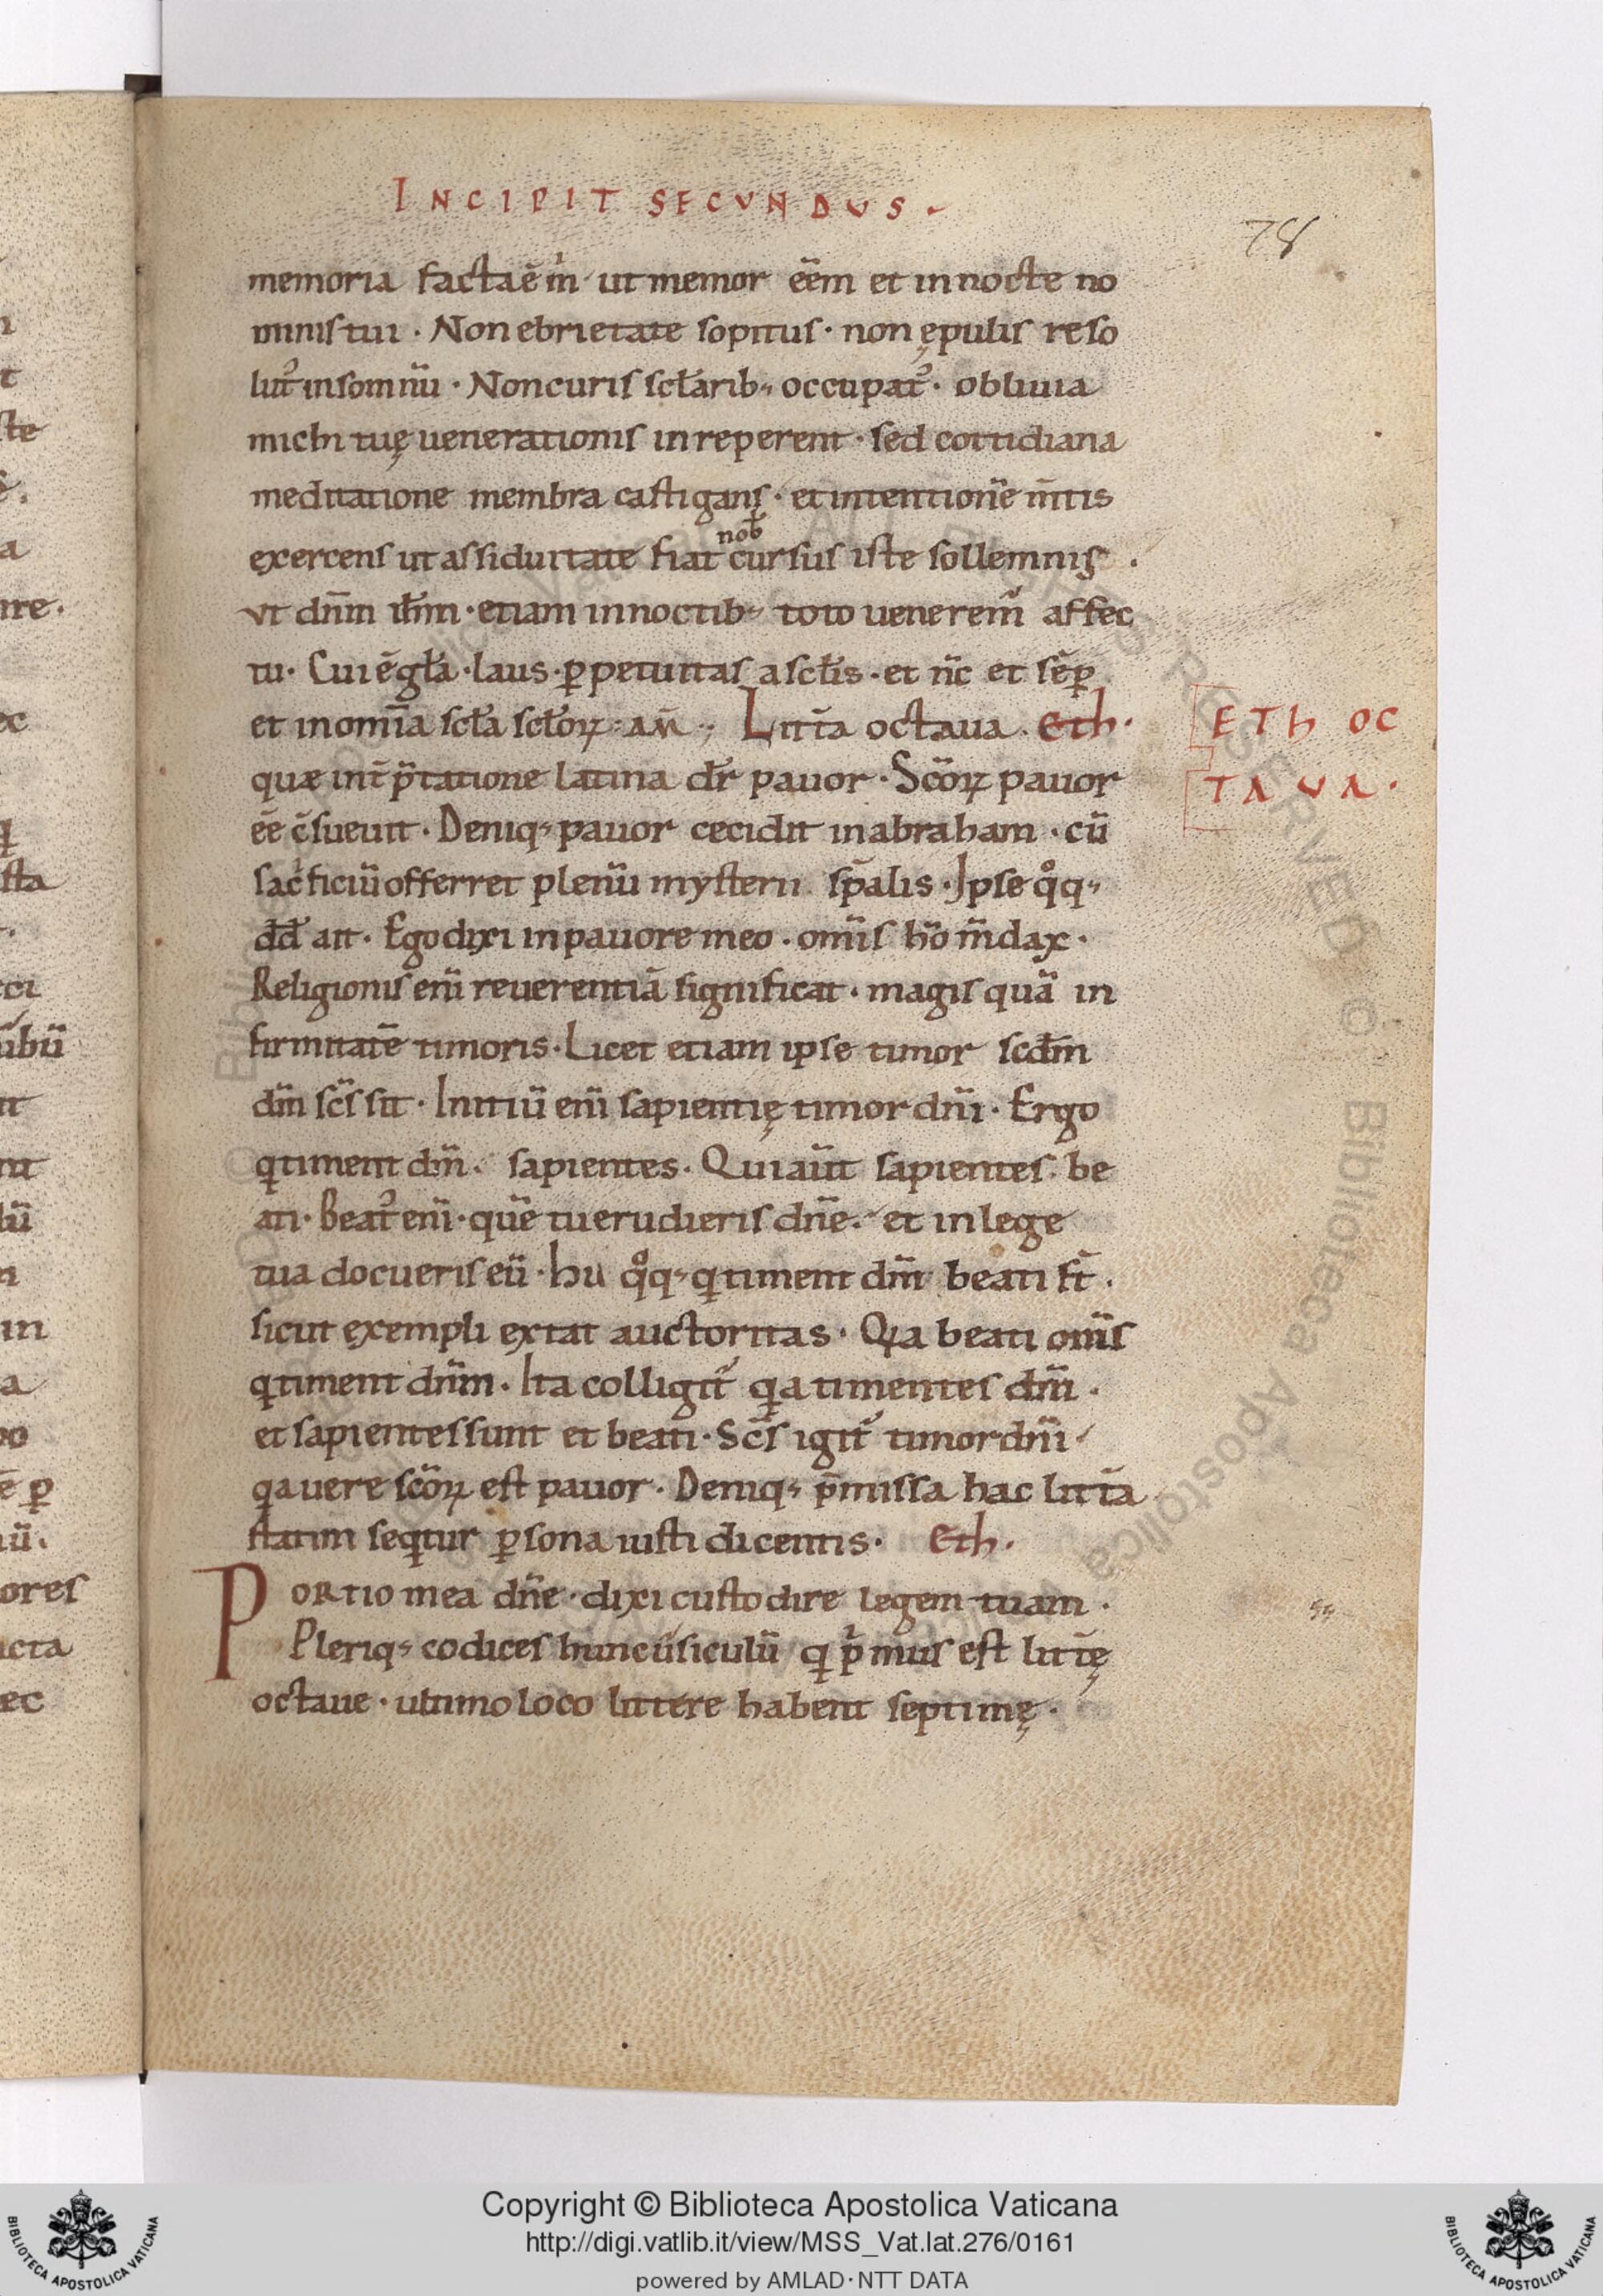 INCIPIT SECVNDUS.
78
memoria facta ē m̄ ut memor eēm et in nocte no
minis tui · Non ebrietate sopitus · non ępulis reso
lut' in somnū · Non curis sctarib; occupat' · obliuia
michi tuę uenerationis inreperent · sed cottidiana
meditatione membra castigans · et intentionē m̄tis
nob̄
exercens ut assiduitate fiat cursus iste sollemnis ·
vt dn̄m ih̄m · etiam in noctib; toto uenerem' affec
tu · Cui ē gła · laus · ꝑpetuitas a scłis · et nc̄ et sēꝑ
et in om̄ia scła scłoꝝ · am̄ ; Litt̄a octaua · Eth ·
ETh OC
TAUA ·
quæ int̄p̄tatione latina dr̄ pauor · Sc̄oꝝ pauor
ēē c̄sueuit · Deniq; pauor cecidit in abraham · cū
sac̍ficiū offerret plenū mysterii sp̄alis · Ipse qͦq;
dd̄ ait · Ego dixi in pauore meo · om̄is hō m̄dax ·
Religionis eni̅ reuerentiā significat · magis quā in
firmitatē timoris · Licet etiam ipse timor scd̄m
dm̄ sc̄s sit · Initiū eni̅ sapientię timor dn̄i · Ergo
q timent dm̄ · sapientes · Qui aūt sapientes · be
ati · Beat' eni̅ · quē tu erudieris dn̄e · et in lege
tua docueris eū · hii qͦq; q timent dm̄ beati st̄ ·
sicut exempli extat auctoritas · Qia beati om̄is
q timent dn̄m · Ita colligit' qia timentes dm̄ ·
et sapientes sunt et beati · Sc̄s igit' timor dn̄i
qa uere sc̄oꝝ est pauor · Deniq; p̄missa hac litt̄a
statim seqitur ꝑsona iusti dicentis · Eth ·
PORTIO mea dn̄e · dixi custodire legem tuam ·
Pleriq; codices hunc ūsiculū q p̍mus est litt̄ę
octaue · ultimo loco littere habent septimę ·
Copyright © Biblioteca Apostolica Vaticana
http://digi.vatlib.it/view/MSS_Vat.lat.276/0161
powered by AMLAD·NTT DATA
BIBLIOTECA APOSTOLICA VATICANA
BIBLIOTECA APOSTOLICA VATICANA